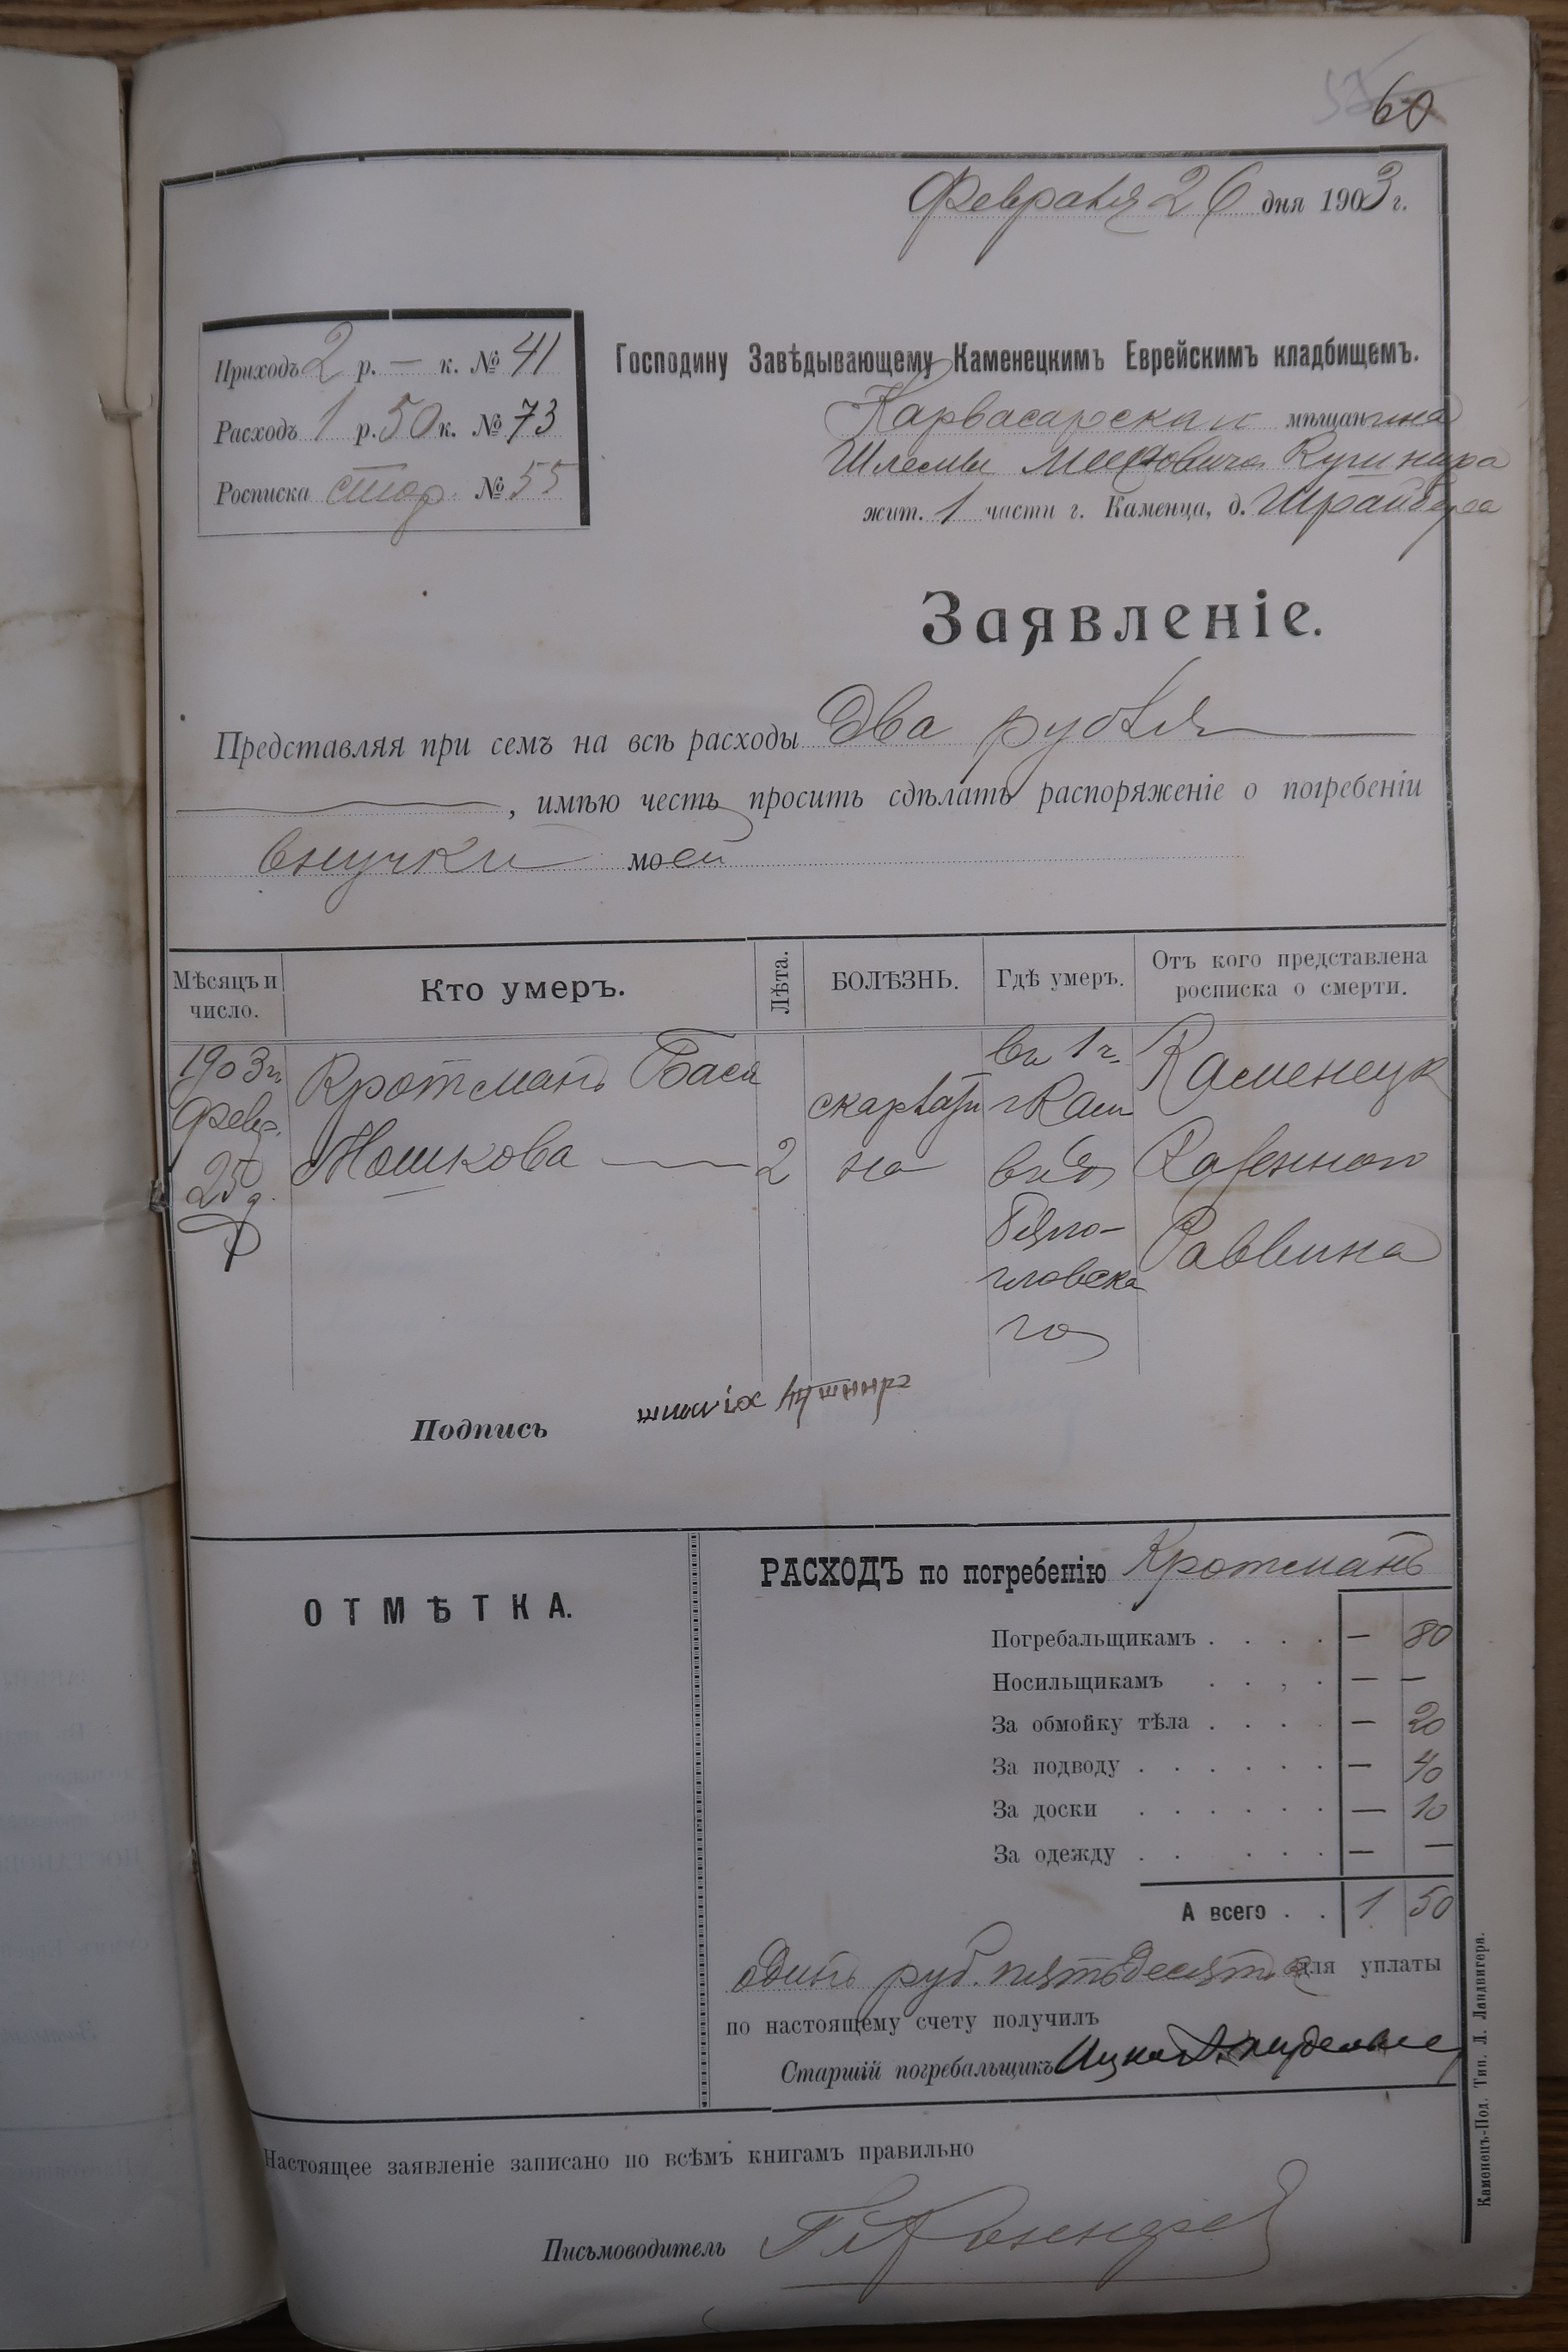 60
Февраля 26 дня 1903 г.
Приходъ 2 р. — к. № 41
Расходъ 1 р. 50 к. № 73
Росписка стор. № 55
Господину Завѣдывающему Каменецкимъ Еврейскимъ кладбищемъ.
Карвасарскаи мѣщанина
Шлемы Кушнира
жит. 1 части г. Каменца, д. Шрайбера
Заявленіе.
Представляя при семъ на всѣ расходы Два рубля
, имѣю честь просить сдѣлать распоряженіе о погребеніи
внучки моей
Мѣсяцъ и число.
Кто умеръ.
Лѣта.
БОЛѢЗНЬ.
Гдѣ умеръ.
Отъ кого представлена росписка о смерти.
1903 г. Февр. 25 д.
Кротманъ Бася Мошкова — 2
скарлатина
въ 1 ч. г Кам
Каменецк Казеннаго Раввина
Подпись
ОТМѢТКА.
РАСХОДЪ по погребенію Кротманъ
Погребальщикамъ . . . . — 80
Носильщикамъ . . , . — —
За обмойку тѣла . . . . — 20
За подводу . . . . . . — 40
За доски . . . . . . — 10
За одежду . . . . . — —
А всего . . 1 50
одинъ руб. пятьдесятъ для уплаты
по настоящему счету получилъ
Старшій погребальщикъ
Настоящее заявленіе записано по всѣмъ книгамъ правильно
Письмоводитель
Каменецъ-Под. Тип. Л. Ландвигера.